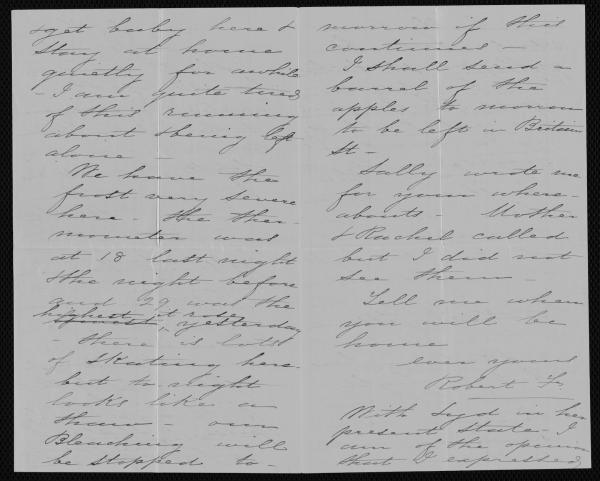 & get baby here &
stay at home
quietly for awhile
- I am quite tired
of this running
about & being left
alone -
We have the
frost very severe
here - the ther-
mometer was
at 18 last night
& the night before
and 29 was the
highest it rose
yesterday
- there is lots
of skating here.
but to night
looks like a
thaw - our
Bleaching will
be stopped to-
morrow if this
continues -
I shall send a
barrel of the
apples to morrow
to be left in Britain
St -
Sally wrote me
for your where-
abouts - Mother
& Rachel called
but I did not
see them -
Tell me when
you will be
home
ever yours
Robert F.
With Lyd in her
present state I
am of the opinion
that I expressed